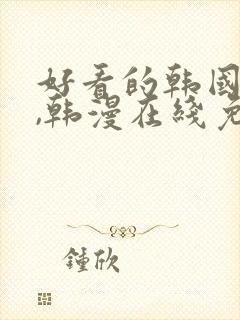 好看的韩国
,韩漫在线免
鍾欣